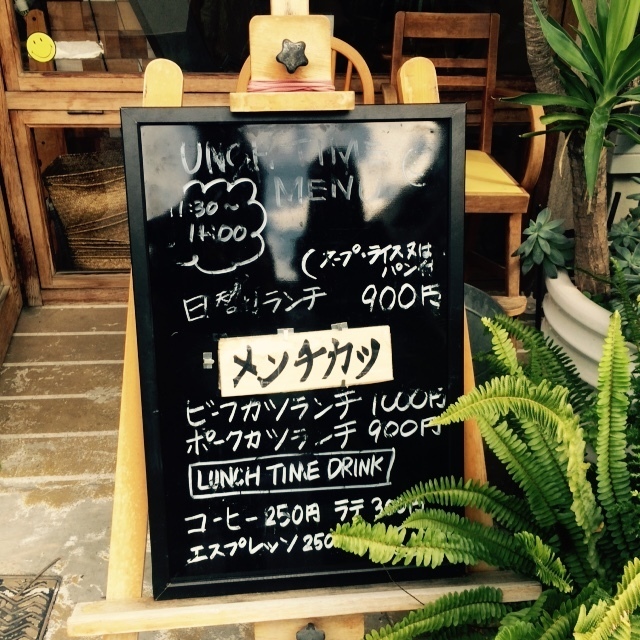 LUNCH TIME
MENU
11:30~
(スープ・ライス又は
パン付
日替りランチ 900円
メンチカツ
ビーフカツランチ 1000円
ポークカツランチ 900円
LUNCH TIME DRINK
コーヒー 250円 ラテ 300円
エスプレッソ 250